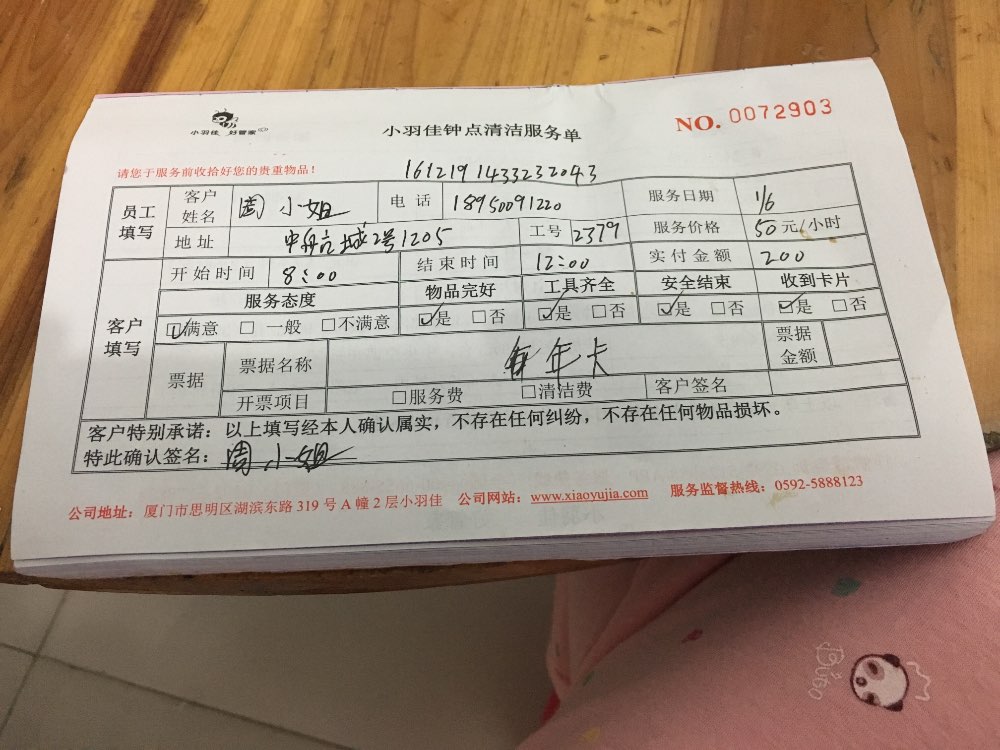 小羽佳 好管家
小羽佳钟点清洁服务单
NO. 0072903
请您于服务前收拾好您的贵重物品！
1612191433232043
员工填写 客户姓名 周小姐 电话 18950091220 服务日期 1/6
地址 中航城2号1205 工号 2379 服务价格 50元/小时
客户填写 开始时间 8:00 结束时间 12:00 实付金额 200
服务态度 物品完好 工具齐全 安全结束 收到卡片
☑满意 □一般 □不满意 ☑是 □否 ☑是 □否 ☑是 □否 ☑是 □否
票据 票据名称 年卡 票据金额
开票项目 □服务费 □清洁费 客户签名
客户特别承诺：以上填写经本人确认属实，不存在任何纠纷，不存在任何物品损坏。
特此确认签名：周小姐
公司地址：厦门市思明区湖滨东路 319 号 A 幢 2 层小羽佳 公司网站：www.xiaoyujia.com 服务监督热线：0592-5888123